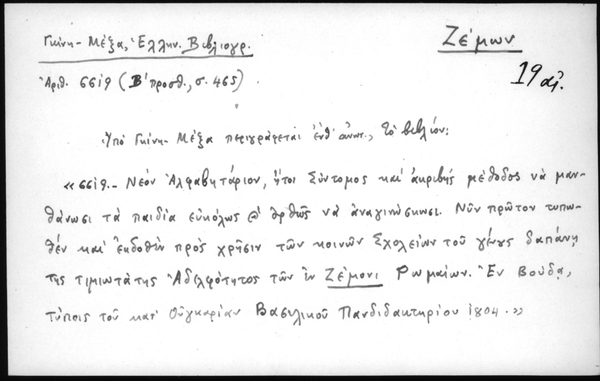 Γκίνη - Μέξα, Ἑλλην. Βιβλιογρ.
Ζέμων
Ἀριθ. 6619 (Β' προσθ., σ. 465)
19 αἰ.
Ὑπὸ Γκίνη - Μέξα περιγράφεται ἔνθ' ἀνωτ., τὸ βιβλίον:
«6619.- Νέον Ἀλφαβητάριον, ἤτοι Σύντομος καὶ ἀκριβὴς μέθοδος νὰ μαν-
θάνωσι τὰ παιδία εὐκόλως ὀρθῶς νὰ ἀναγινώσκωσι. Νῦν πρῶτον τυπω-
θὲν καὶ ἐκδοθὲν πρὸς χρῆσιν τῶν κοινῶν Σχολείων τοῦ γένους δαπάνῃ
τῆς τιμιωτάτης Ἀδελφότητος τῶν ἐν Ζέμονι Ρωμαίων. Ἐν Βούδᾳ,
τύποις τοῦ κατ' Οὐγκαρίαν Βασιλικοῦ Πανδιδακτηρίου 1804.»